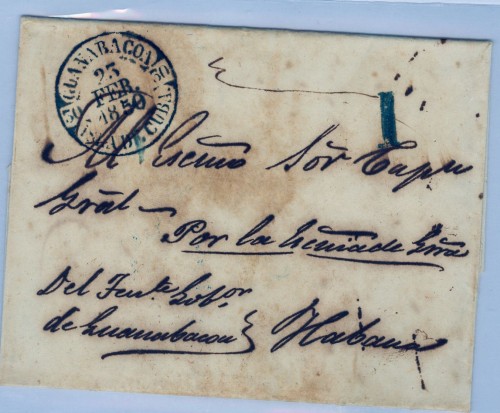 GUANABACOA
23
FEB.
1850
CUBA
1
Al Escmo Sór Capn
Gral
Por la Escma de Gñra
Del Tente Gobor
de Guanabacoa
Habana